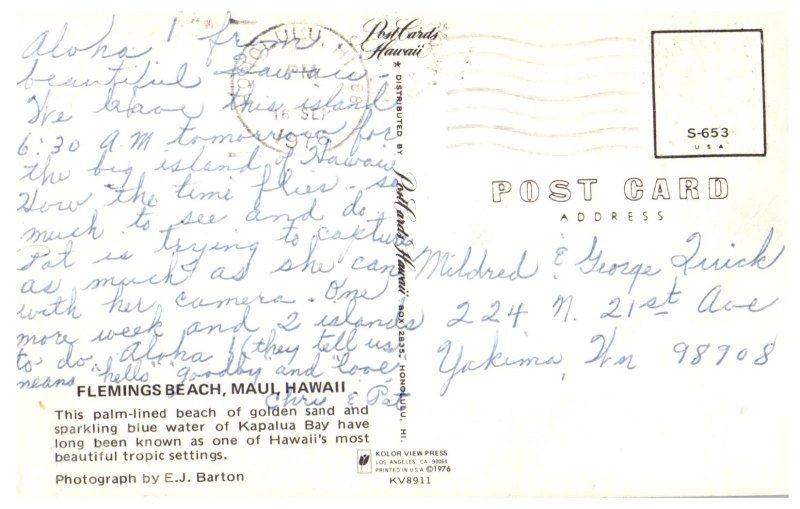 Aloha from
beautiful Hawaii -
We leave this island
6:30 A.M tomorrow for
the big island of Hawaii
How the time flies - so
much to see and do.
Pat is trying to capture
as much as she can
with her camera. One
more week and 2 islands
to do. Aloha (they tell us
means "hello" goodby and love)
Chris & Pat
FLEMINGS BEACH, MAUI, HAWAII
This palm-lined beach of golden sand and
sparkling blue water of Kapalua Bay have
long been known as one of Hawaii's most
beautiful tropic settings.
Photograph by E.J. Barton
HONOLULU, HI
PM
16 SEP
Post Cards
Hawaii
DISTRIBUTED BY Post Cards Hawaii BOX 2835, HONOLULU, HI.
KOLOR VIEW PRESS
LOS ANGELES, CA 90064
PRINTED IN U.S.A ©1976
KV8911
S-653
U S A
POST CARD
ADDRESS
Mildred & George Quick
224 N. 21st Ave
Yakima, Wn 98908